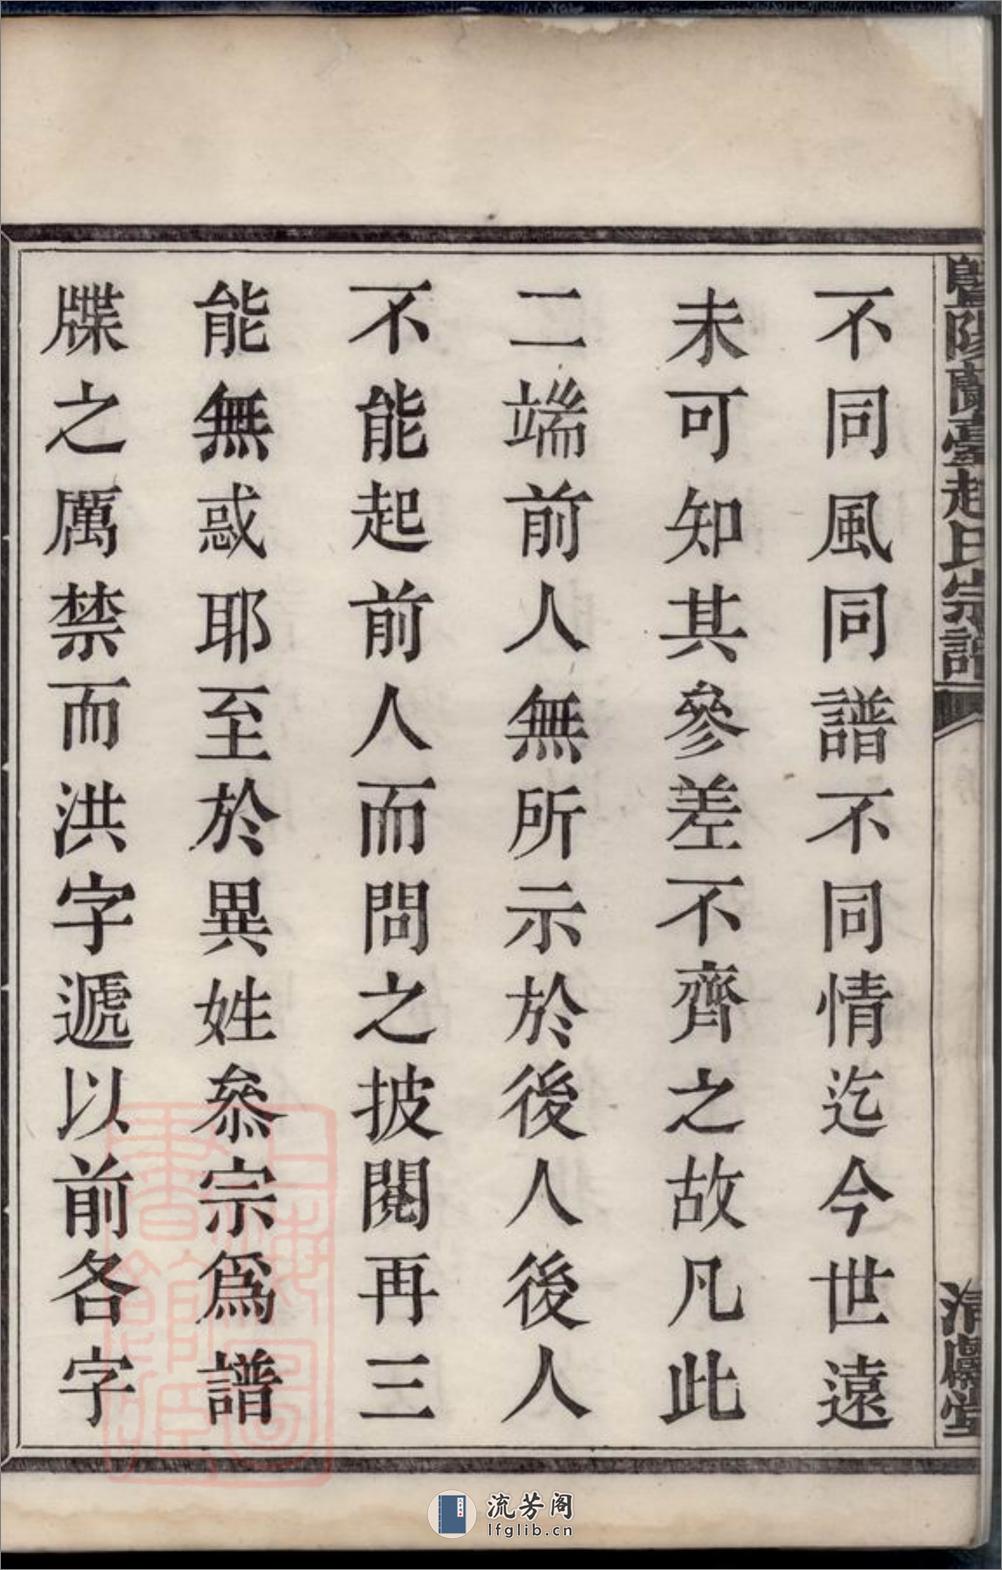 暨陽蘭臺趙氏宗譜
清獻堂
不同風同譜不同情迄今世遠
未可知其參差不齊之故凡此
二端前人無所示於後人後人
不能起前人而問之披閱再三
能無惑耶至於異姓叅宗爲譜
牒之厲禁而洪字遞以前各字
上海圖書館藏
流芳阁
lfglib.cn